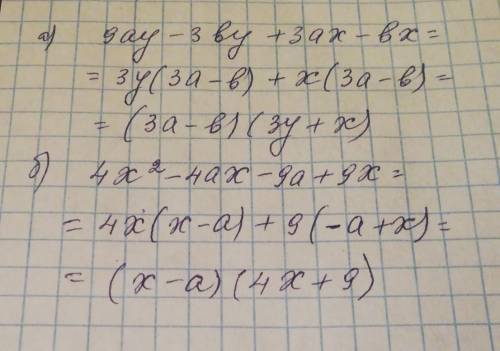 а) 9ay - 3вy + 3ax - вx =
= 3y(3a - в) + x(3a - в) =
= (3a - в)(3y + x)
б) 4x² - 4ax - 9a + 9x =
= 4x(x - a) + 9(-a + x) =
= (x - a)(4x + 9)